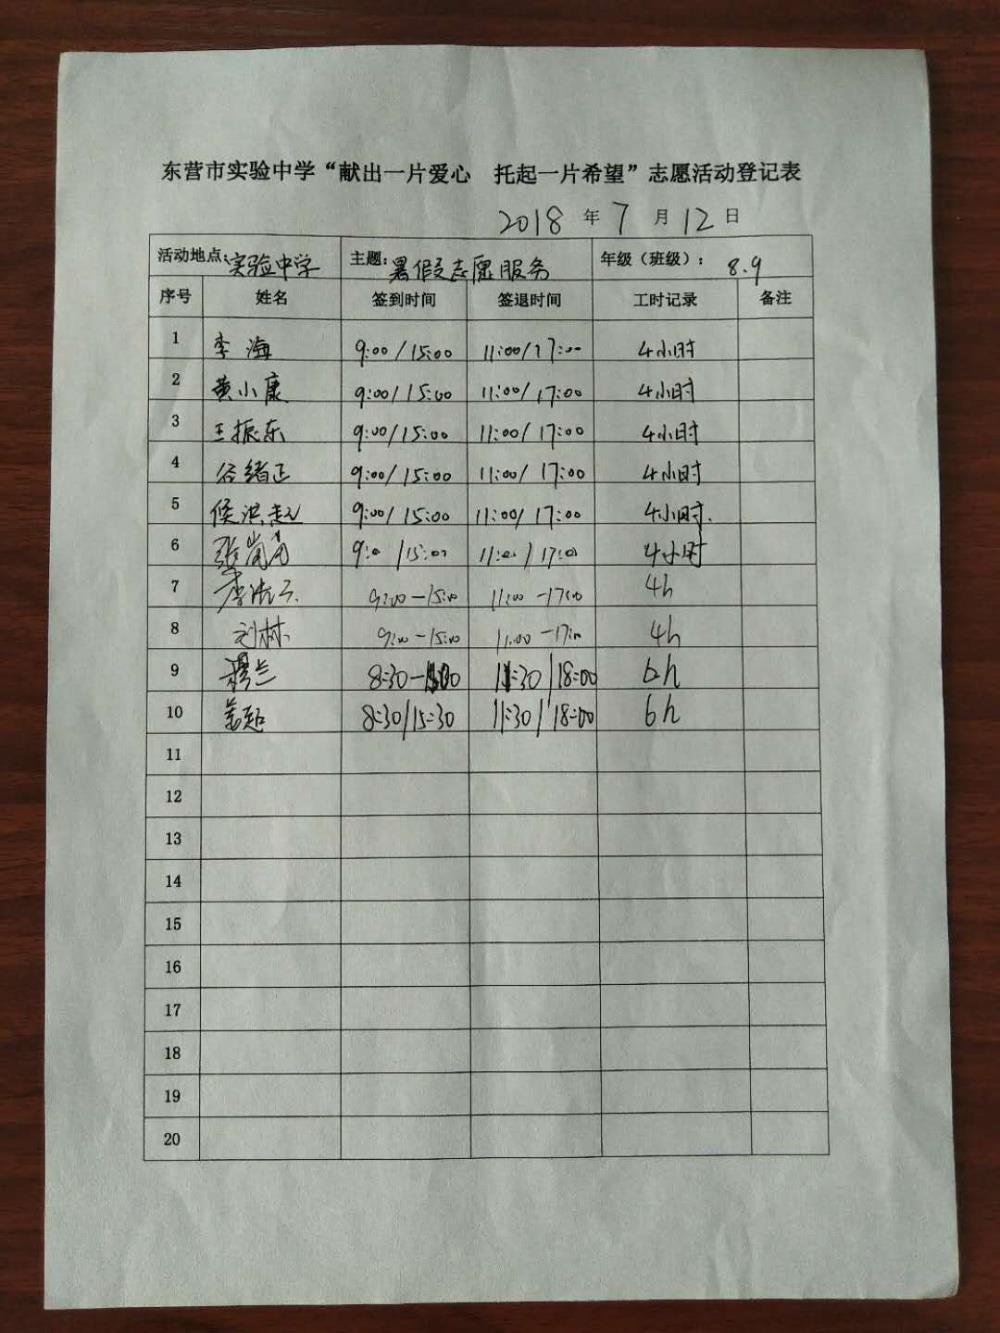 东营市实验中学“献出一片爱心 托起一片希望”志愿活动登记表
2018 年 7 月 12 日
活动地点: 实验中学 主题: 暑假志愿服务 年级（班级）: 8.9
序号 姓名 签到时间 签退时间 工时记录 备注
1 李海 9:00/15:00 11:00/17:00 4小时
2 黄小康 9:00/15:00 11:00/17:00 4小时
3 王振东 9:00/15:00 11:00/17:00 4小时
4 谷绪正 9:00/15:00 11:00/17:00 4小时
5 9:00/15:00 11:00/17:00 4小时.
6 /15:00 11:00/17:00 4小时
7 9:00-15:00 11:00-17:00 4h
8 刘林 9:00-15:00 11:00-17:00 4h
9 8:30- 11:30/18:00 6h
10 8:30/15:30 11:30/18:00 6h
11
12
13
14
15
16
17
18
19
20